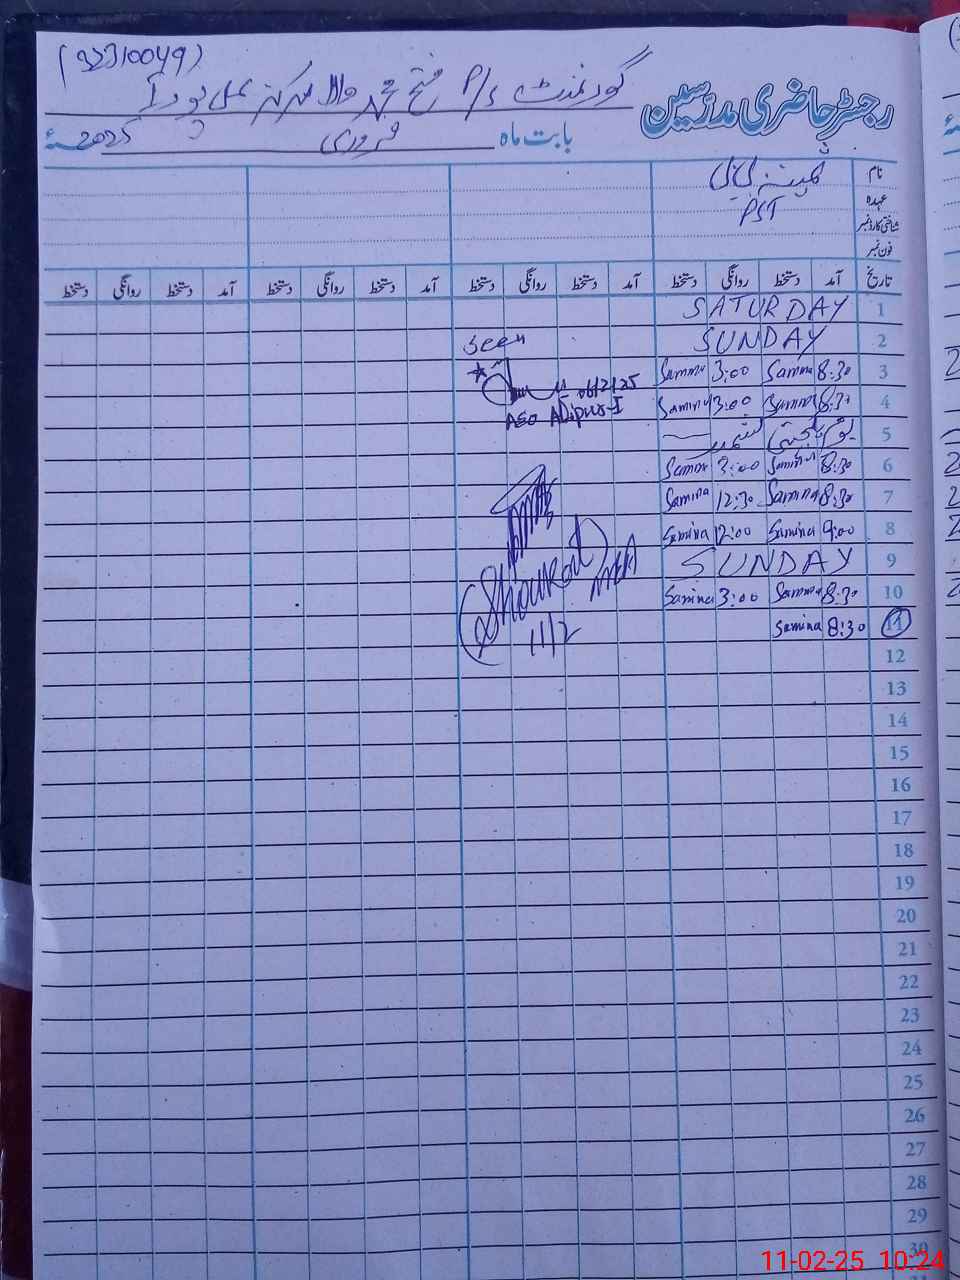 (32310049)
گورنمنٹ P/S فتح محمد والا مرکز علی پور I
رجسٹر حاضری مدرسین
بابت ماہ فروری 2025 سنہ
نام ثمینہ بی بی
عہدہ PST
شناختی کارڈ نمبر
فون نمبر
تاریخ آمد دستخط روانگی دستخط آمد دستخط روانگی دستخط آمد دستخط روانگی دستخط آمد دستخط روانگی دستخط
1 SATURDAY
2 SUNDAY
seen
3 8:30 Samina 3:00 Samina
06/2/25
4 8:30 Samina 3:00 Samina
AEO Alipur-I
5 یوم یکجہتی کشمیر
6 8:30 Samina 3:00 Samina
7 8:30 Samina 12:30 Samina
8 9:00 Samina 12:00 Samina
9 SUNDAY
10 8:30 Samina 3:00 Samina
Shoukat MEA
11 8:30 Samina
11/2
12
13
14
15
16
17
18
19
20
21
22
23
24
25
26
27
28
29
30
11-02-25 10:24